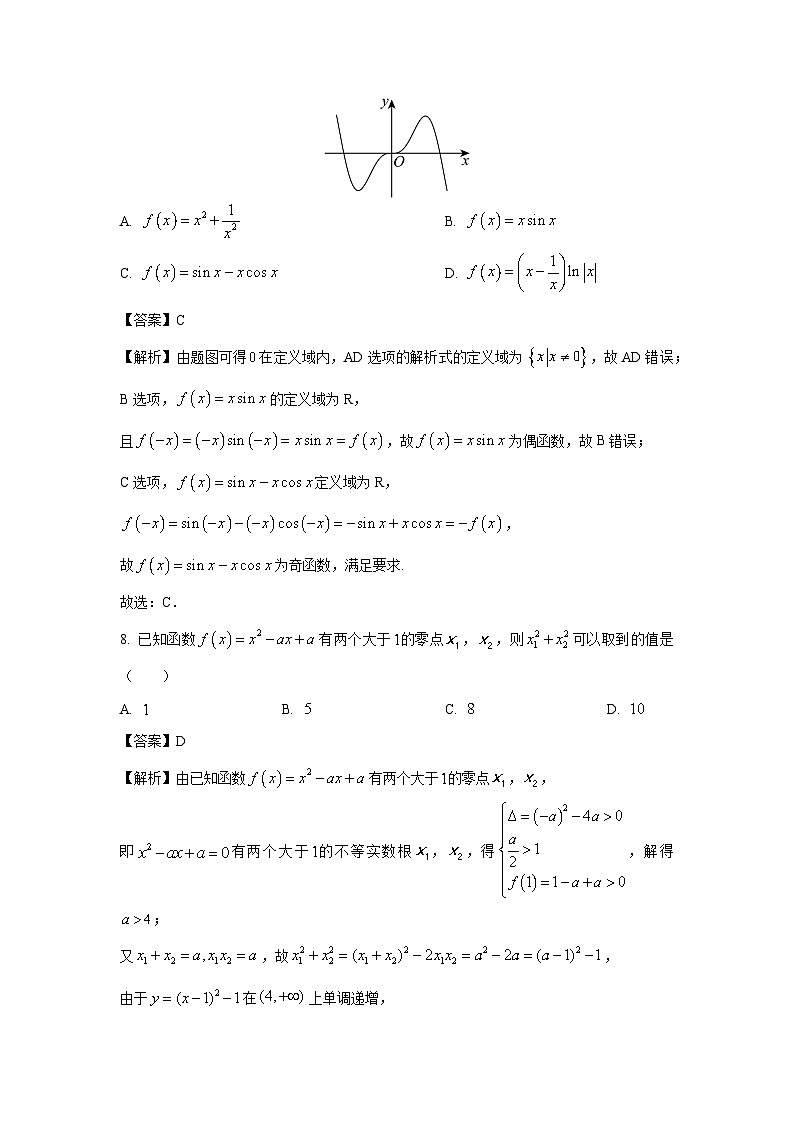 y
O
x
A. f(x)=x²+1/x² B. f(x)=x sin x
C. f(x)=sin x−x cos x D. f(x)=(x−1/x)ln|x|
【答案】C
【解析】由题图可得0在定义域内，AD选项的解析式的定义域为{x|x≠0}，故AD错误；
B选项，f(x)=x sin x的定义域为R，
且f(−x)=(−x)sin(−x)=x sin x=f(x)，故f(x)=x sin x为偶函数，故B错误；
C选项，f(x)=sin x−x cos x定义域为R，
f(−x)=sin(−x)−(−x)cos(−x)=−sin x+x cos x=−f(x)，
故f(x)=sin x−x cos x为奇函数，满足要求.
故选：C．
8. 已知函数f(x)=x²−ax+a有两个大于1的零点x₁，x₂，则x₁²+x₂²可以取到的值是
（ ）
A. 1 B. 5 C. 8 D. 10
【答案】D
【解析】由已知函数f(x)=x²−ax+a有两个大于1的零点x₁，x₂，
即x²−ax+a=0有两个大于1的不等实数根x₁，x₂，得{Δ=(−a)²−4a>0
a/2>1
f(1)=1−a+a>0，解得
a>4；
又x₁+x₂=a,x₁x₂=a，故x₁²+x₂²=(x₁+x₂)²−2x₁x₂=a²−2a=(a−1)²−1，
由于y=(x−1)²−1在(4,+∞)上单调递增，